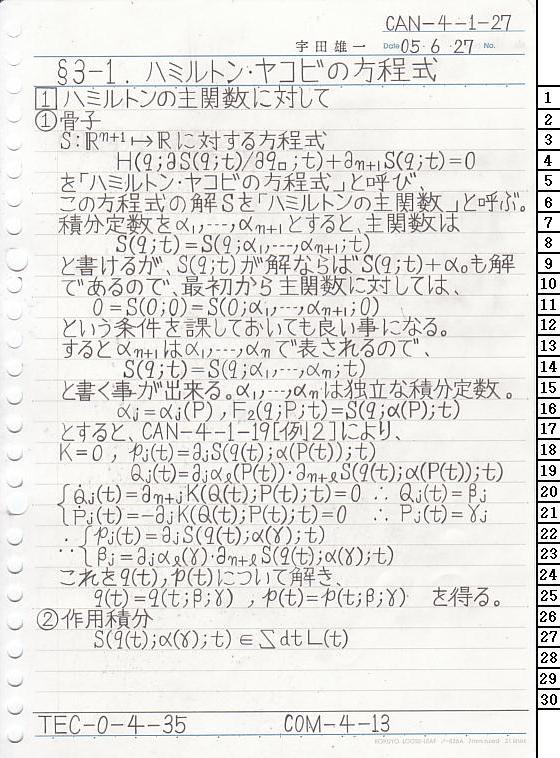 CAN-4-1-27
宇田雄一 Date 05・6・27 No.
§3-1. ハミルトン・ヤコビの方程式
1 ハミルトンの主関数に対して
① 骨子
S:ℝⁿ⁺¹↦ℝに対する方程式
H(q;∂S(q;t)/∂q□;t)+∂ₙ₊₁S(q;t)=0
を「ハミルトン・ヤコビの方程式」と呼び、
この方程式の解Sを「ハミルトンの主関数」と呼ぶ。
積分定数をα₁,…,αₙ₊₁とすると、主関数は
S(q;t)=S(q;α₁,…,αₙ₊₁;t)
と書けるが、S(q;t)が解ならばS(q;t)+α₀も解
であるので、最初から主関数に対しては、
0=S(0;0)=S(0;α₁,…,αₙ₊₁;0)
という条件を課しておいても良い事になる。
するとαₙ₊₁はα₁,…,αₙで表されるので、
S(q;t)=S(q;α₁,…,αₙ;t)
と書く事が出来る。α₁,…,αₙは独立な積分定数。
αⱼ=αⱼ(P),F₂(q;P;t)=S(q;α(P);t)
とすると、CAN-4-1-19[例2]により、
K=0, pⱼ(t)=∂ⱼS(q(t);α(P(t));t)
Qⱼ(t)=∂ⱼαℓ(P(t))・∂ₙ₊ℓS(q(t);α(P(t));t)
{Q̇ⱼ(t)=∂ₙ₊ⱼK(Q(t);P(t);t)=0 ∴ Qⱼ(t)=βⱼ
Ṗⱼ(t)=-∂ⱼK(Q(t);P(t);t)=0 ∴ Pⱼ(t)=γⱼ
∵{pⱼ(t)=∂ⱼS(q(t);α(γ);t)
βⱼ=∂ⱼαℓ(γ)・∂ₙ₊ℓS(q(t);α(γ);t)
これをq(t),p(t)について解き、
q(t)=q(t;β;γ), p(t)=p(t;β;γ) を得る。
② 作用積分
S(q(t);α(γ);t)∈∫dtL(t)
TEC-0-4-35 COM-4-13
KOKUYO LOOSE-LEAF ノ-836A 7mm ruled 31 lines
1
2
3
4
5
6
7
8
9
10
11
12
13
14
15
16
17
18
19
20
21
22
23
24
25
26
27
28
29
30